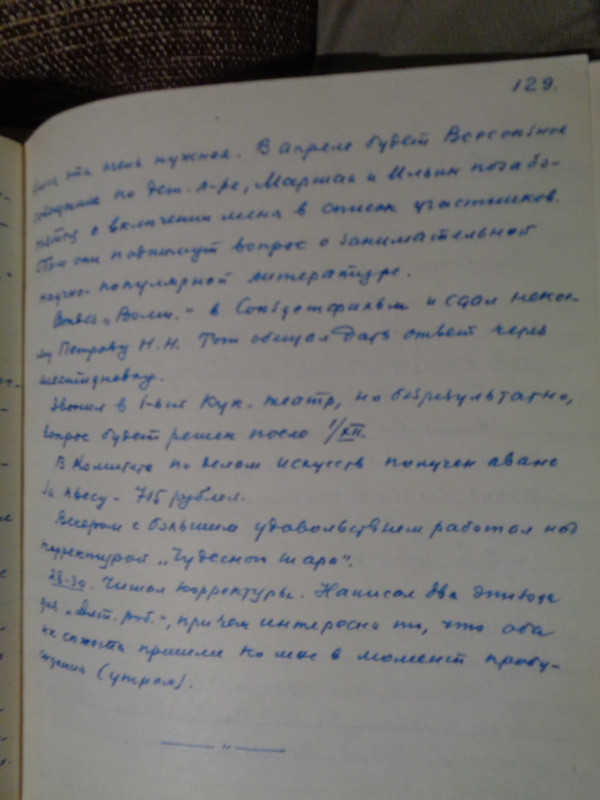 129.
эта очень нужная. В апреле будет Всесоюзное
совещание по дет. л-ре, Маршак и Ильин позабо-
тятся о включении меня в список участников.
Там они поднимут вопрос о занимательной
научно-популярной литературе.
"Волш." в Союздетфильм и сдал некое-
му Петрову Н.Н. Тот обещал дать ответ через
шестидневку.
Звонил в 1-ый Кук. театр, но безрезультатно,
вопрос будет решен после 1/XII.
В Комитете по делам искусств получен аванс
за пьесу - 715 рублей.
Вечером с большим удовольствием работал над
корректурой "Чудесного шара".
29-30. Читал корректуры. Написал два эпизода
для "Алт. роб.", причем интересно то, что оба
сюжета пришли ко мне в момент пробу-
ждения (утром).